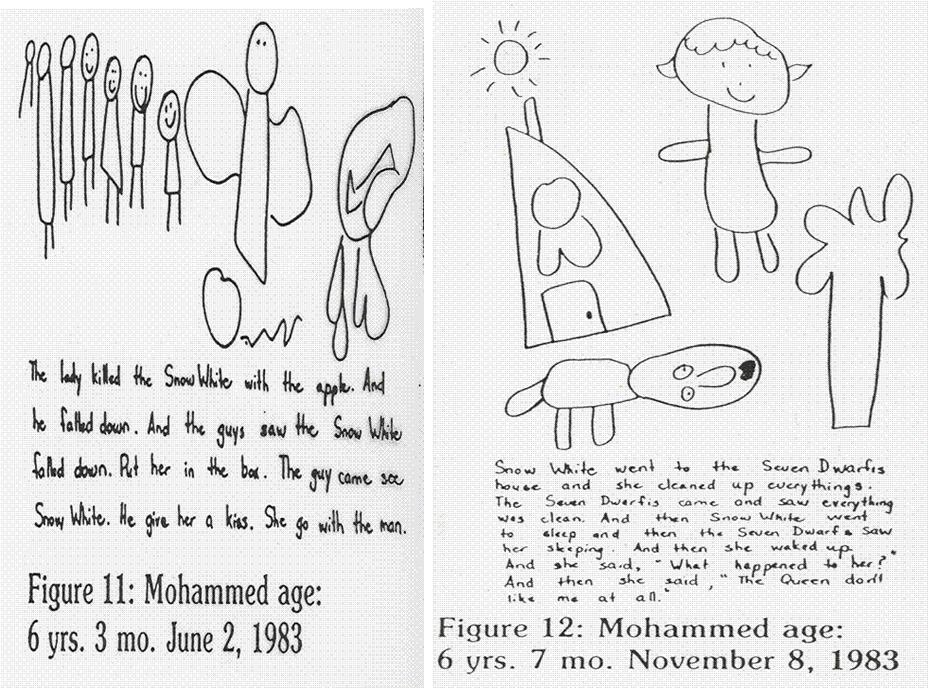 The lady killed the Snow White with the apple. And
he falled down. And the guys saw the Snow White
falled down. Put her in the box. The guy came see
Snow White. He give her a kiss. She go with the man.
Figure 11: Mohammed age:
6 yrs. 3 mo. June 2, 1983
Snow White went to the Seven Dwarfis
house and she cleaned up everythings.
The Seven Dwarfis came and saw everything
was clean. And then Snow White went
to sleep and then the Seven Dwarfs saw
her sleeping. And then she waked up.
And she said, "What happened to her?"
And then she said, "The Queen don't
like me at all."
Figure 12: Mohammed age:
6 yrs. 7 mo. November 8, 1983